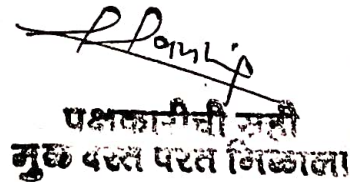 पक्षकाराची सही
मुळ दस्त परत मिळाला